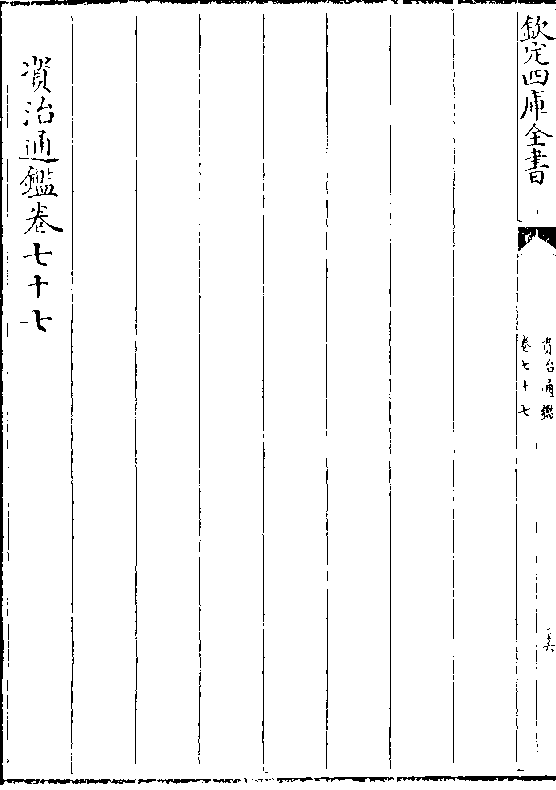 欽定四庫全書
資治通鑑
卷七十七
資治通鑑卷七十七